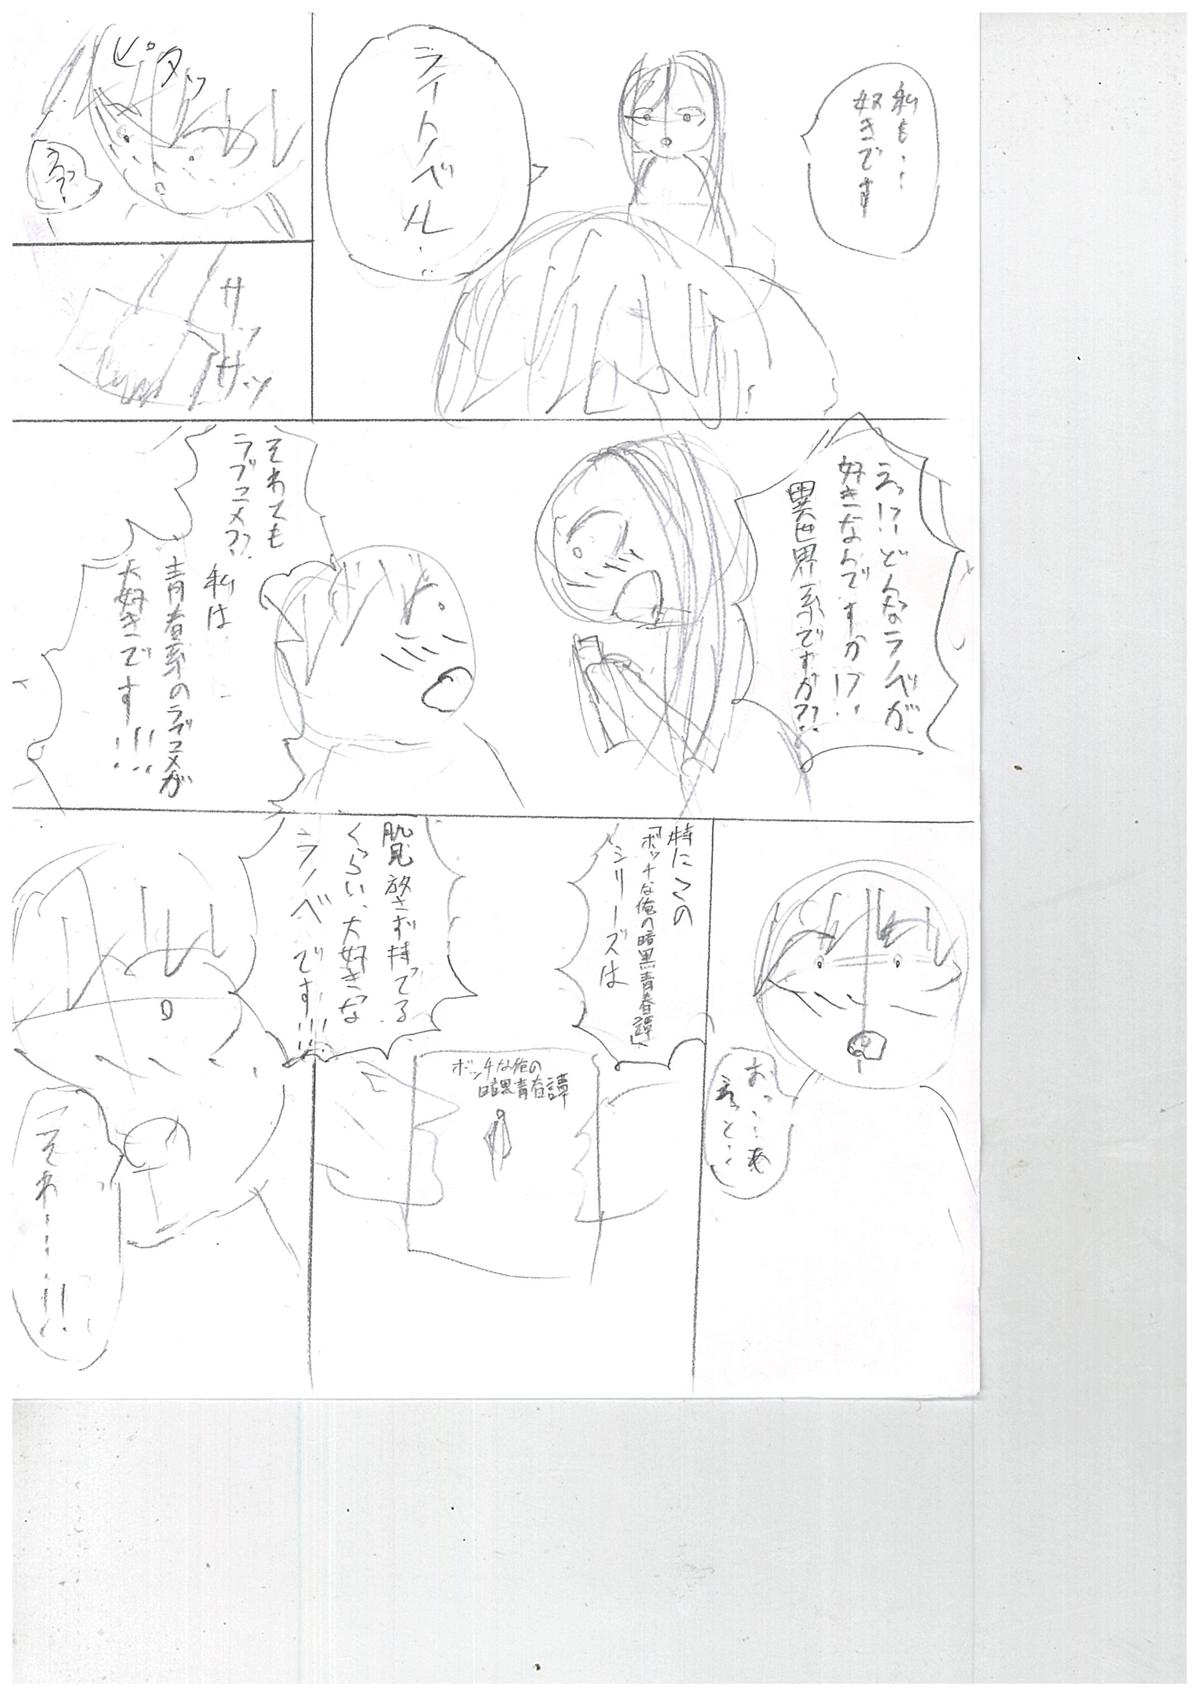 私も‥
好きです
ライトノベル‥
ピタッ
えっ?
サッ
サッ
えっ!?どんなラノベが
好きなんですか!?
異世界系ですか??
それとも
ラブコメ??
私は
青春系のラブコメが
大好きです!!!
おっ‥あ
えと‥
特にこの
「ボッチな俺の暗黒青春譚」
シリーズは
肌見放さず持ってる
くらい、大好きな
ラノベです!!!
ボッチな俺の
暗黒青春譚
それ‥‥!!